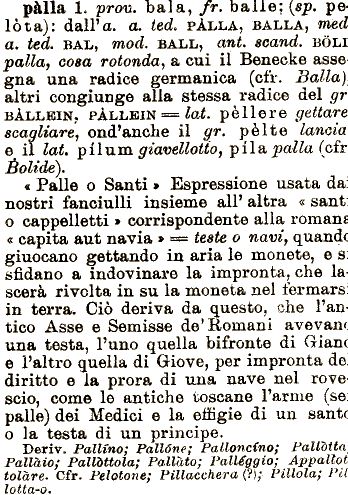 pàlla 1. prov. bala, fr. balle; (sp. pe-
lòta): dall'a. a. ted. PÀLLA, BALLA, med
a. ted. BAL, mod. BALL, ant. scand. BÖLI
palla, cosa rotonda, a cui il Benecke asse-
gna una radice germanica (cfr. Balla)
altri congiunge alla stessa radice del gr
BÀLLEIN, PÀLLEIN = lat. pèllere gettare
scagliare, ond'anche il gr. pèlte lancia
e il lat. pílum giavellotto, píla palla (cfr
Bolide).
« Palle o Santi » Espressione usata dai
nostri fanciulli insieme all' altra « santi
o cappelletti » corrispondente alla romana
« capita aut navia » = teste o navi, quando
giuocano gettando in aria le monete, e si
sfidano a indovinare la impronta, che la-
scerà rivolta in su la moneta nel fermarsi
in terra. Ciò deriva da questo, che l'an-
tico Asse e Semisse de' Romani avevano
una testa, l'uno quella bifronte di Giano
e l'altro quella di Giove, per impronta de
diritto e la prora di una nave nel rove-
scio, come le antiche toscane l'arme (sei
palle) dei Medici e la effigie di un santo
o la testa di un principe.
Deriv. Pallíno; Pallóne; Palloncíno; Pallòtta
Pallàio; Pallòttola; Pallàto; Palléggio; Appallot-
tolàre. Cfr. Pelotone; Pillacchera (?); Pillola; Pil
lotta-o.